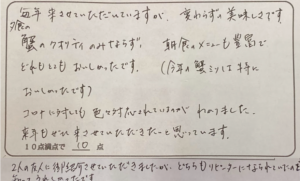 毎年来させていただいていますが、変わらずの美味しさです。
夕食の
蟹のクオリティのみならず、朝食のメニューも豊富で
どれもとてもおいしかったです。(今年の蟹ミソは特に
おいしかったです)
コロナに対しても色々対応されているのがわかりました。
来年もぜひ来させていただきたいと思っています。
10点満点で 10 点
2人の友人に御紹介させていただきましたが、どちらもリピーターになられていたのを
うれしかったです